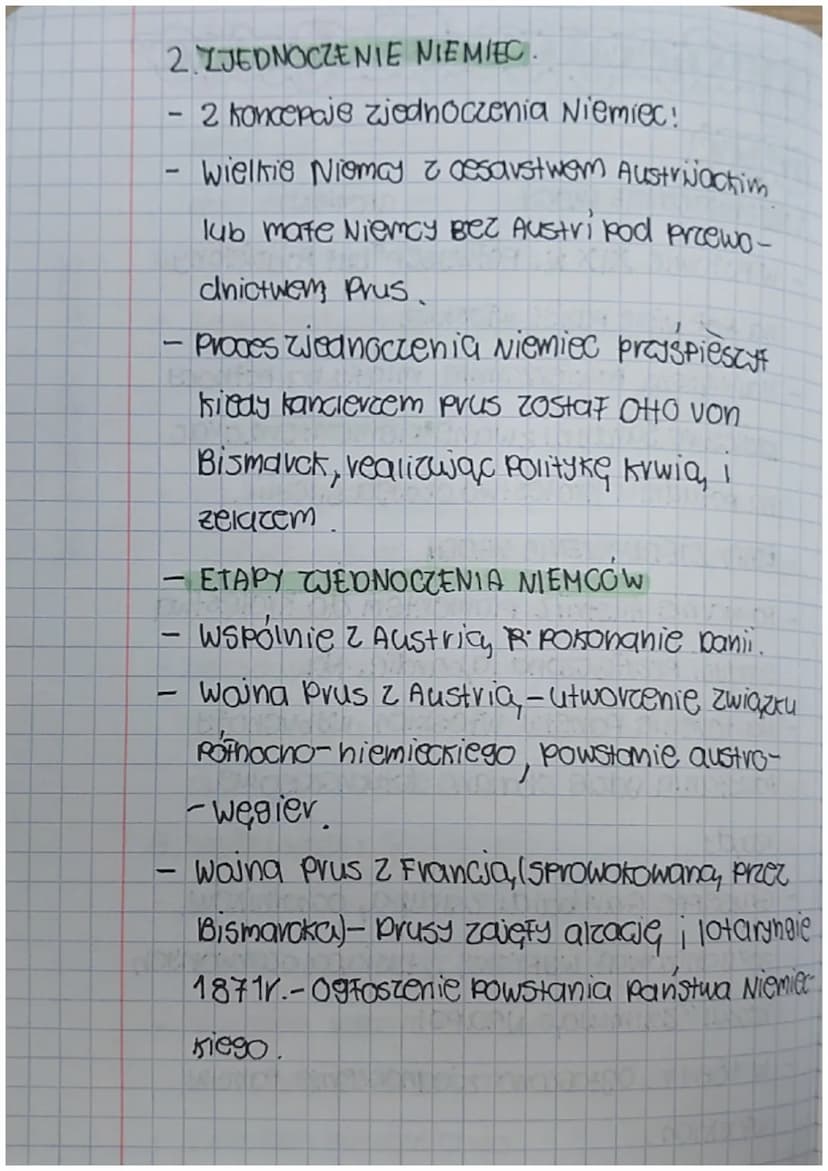 2. ZJEDNOCZENIE NIEMIEC.
- 2 koncepcje zjednoczenia Niemiec:
- Wielkie Niemcy z cesarstwem Austrijackim
lub małe Niemcy BEZ Austri pod przewo-
dnictwem Prus.
- Proces zjednoczenia Niemiec przyśpieszył
kiedy kanclerzem Prus został Otto von
Bismarck, realizując politykę krwią i
żelazem.
- ETAPY ZJEDNOCZENIA NIEMCÓW
- Wspólnie z Austrią pokonanie Danii.
- Wojna Prus z Austrią - utworzenie związku
Północno-niemieckiego, powstanie austro-
-węgier.
- Wojna Prus z Francją (sprowokowaną przez
Bismarcka) - Prusy zajęły alzację i lotaryngie
1871r. - Ogłoszenie powstania państwa Niemiec
kiego.